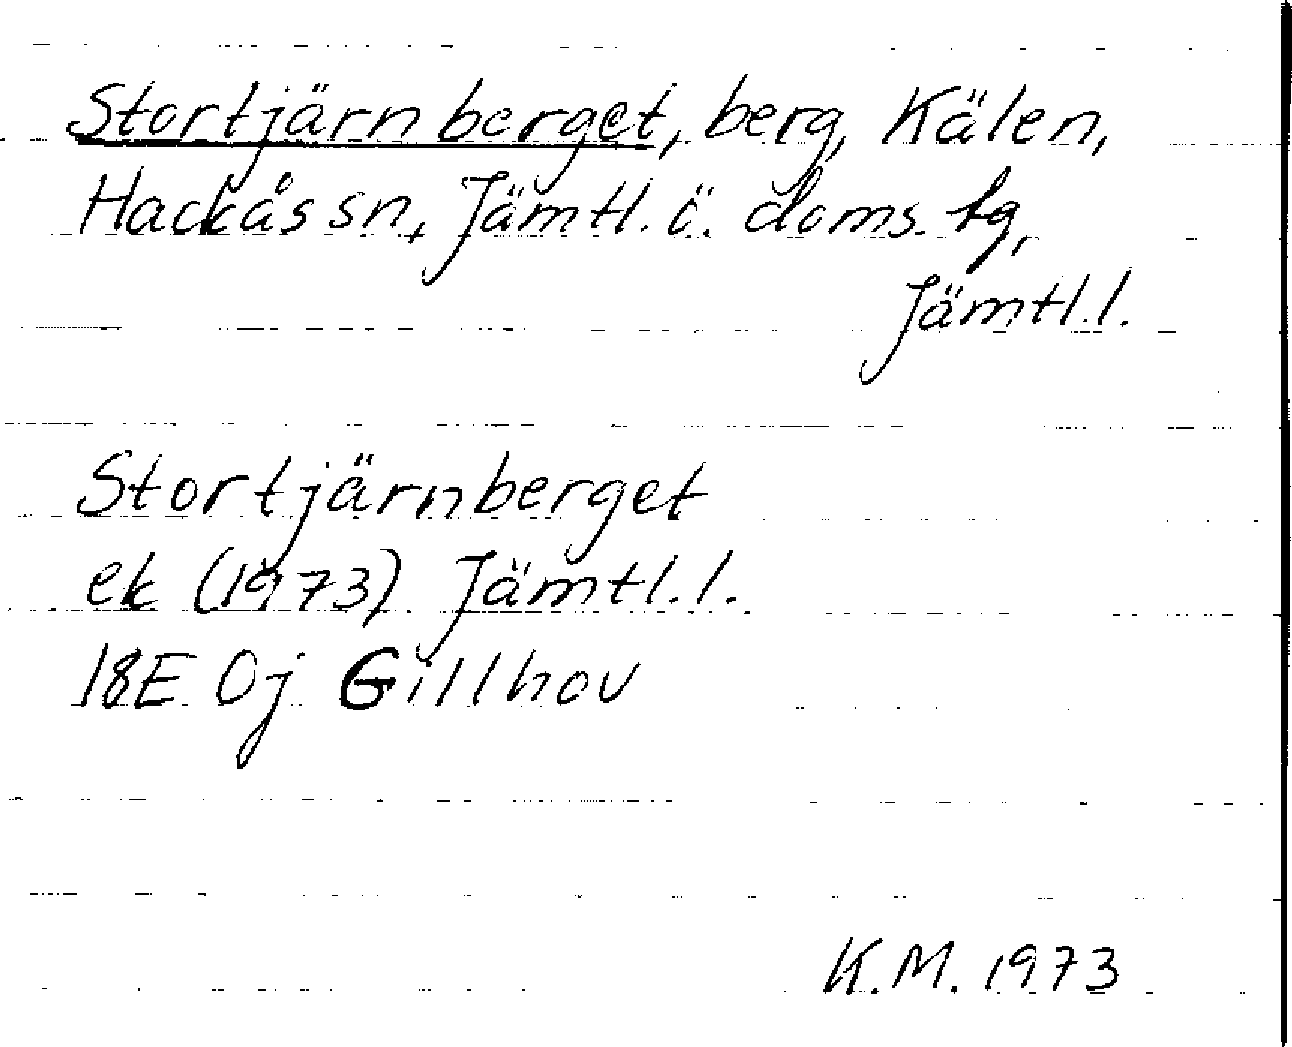 Stortjärnberget, berg, Kälen,
Hackås sn, Jämtl. ö. doms. tg,
Jämtl.l.
Stortjärnberget
ek (1973) Jämtl.l.
18E 0j Gillhov
K.M. 1973